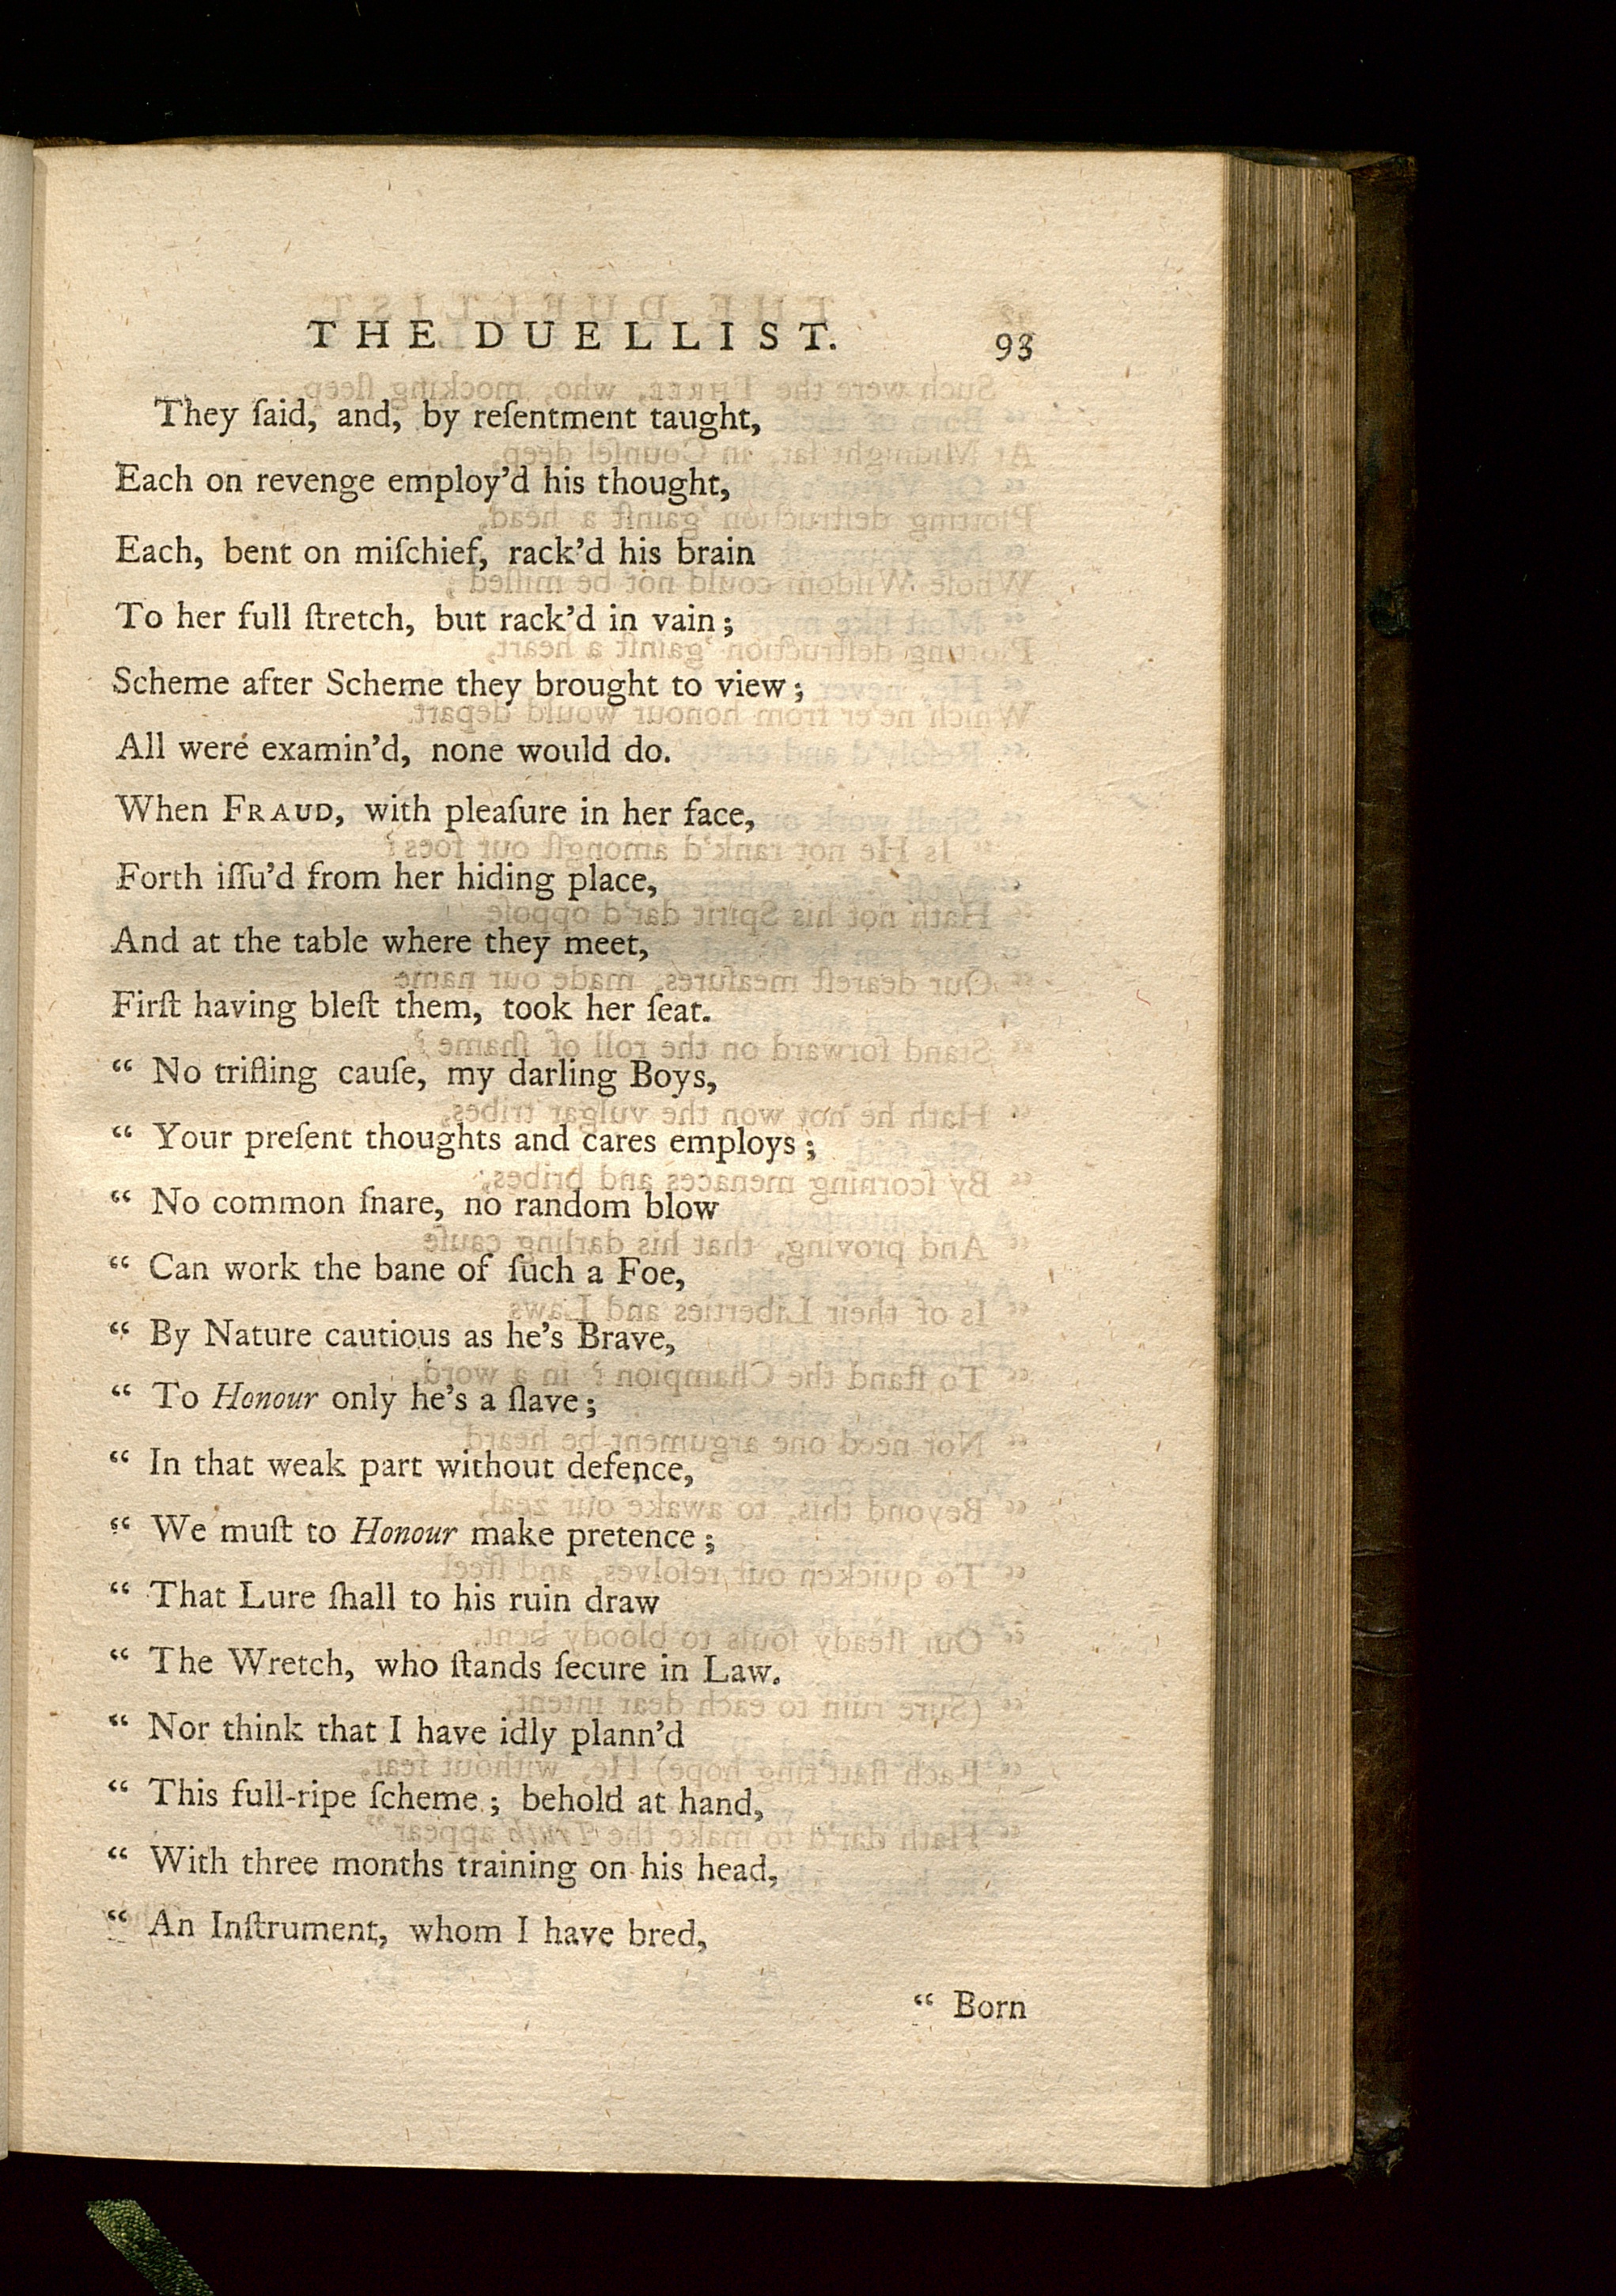 THE DUELLIST. 93
They ſaid, and, by reſentment taught,
Each on revenge employ'd his thought,
Each, bent on miſchief, rack'd his brain
To her full ſtretch, but rack'd in vain;
Scheme after Scheme they brought to view;
All were examin'd, none would do.
When FRAUD, with pleaſure in her face,
Forth iſſu'd from her hiding place,
And at the table where they meet,
Firſt having bleſt them, took her ſeat.
“ No trifling cauſe, my darling Boys,
“ Your preſent thoughts and cares employs;
“ No common ſnare, no random blow
“ Can work the bane of ſuch a Foe,
“ By Nature cautious as he's Brave,
“ To Honour only he's a ſlave;
“ In that weak part without defence,
“ We muſt to Honour make pretence;
“ That Lure ſhall to his ruin draw
“ The Wretch, who ſtands ſecure in Law.
“ Nor think that I have idly plann'd
“ This full-ripe ſcheme; behold at hand,
“ With three months training on his head,
“ An Inſtrument, whom I have bred,
“ Born